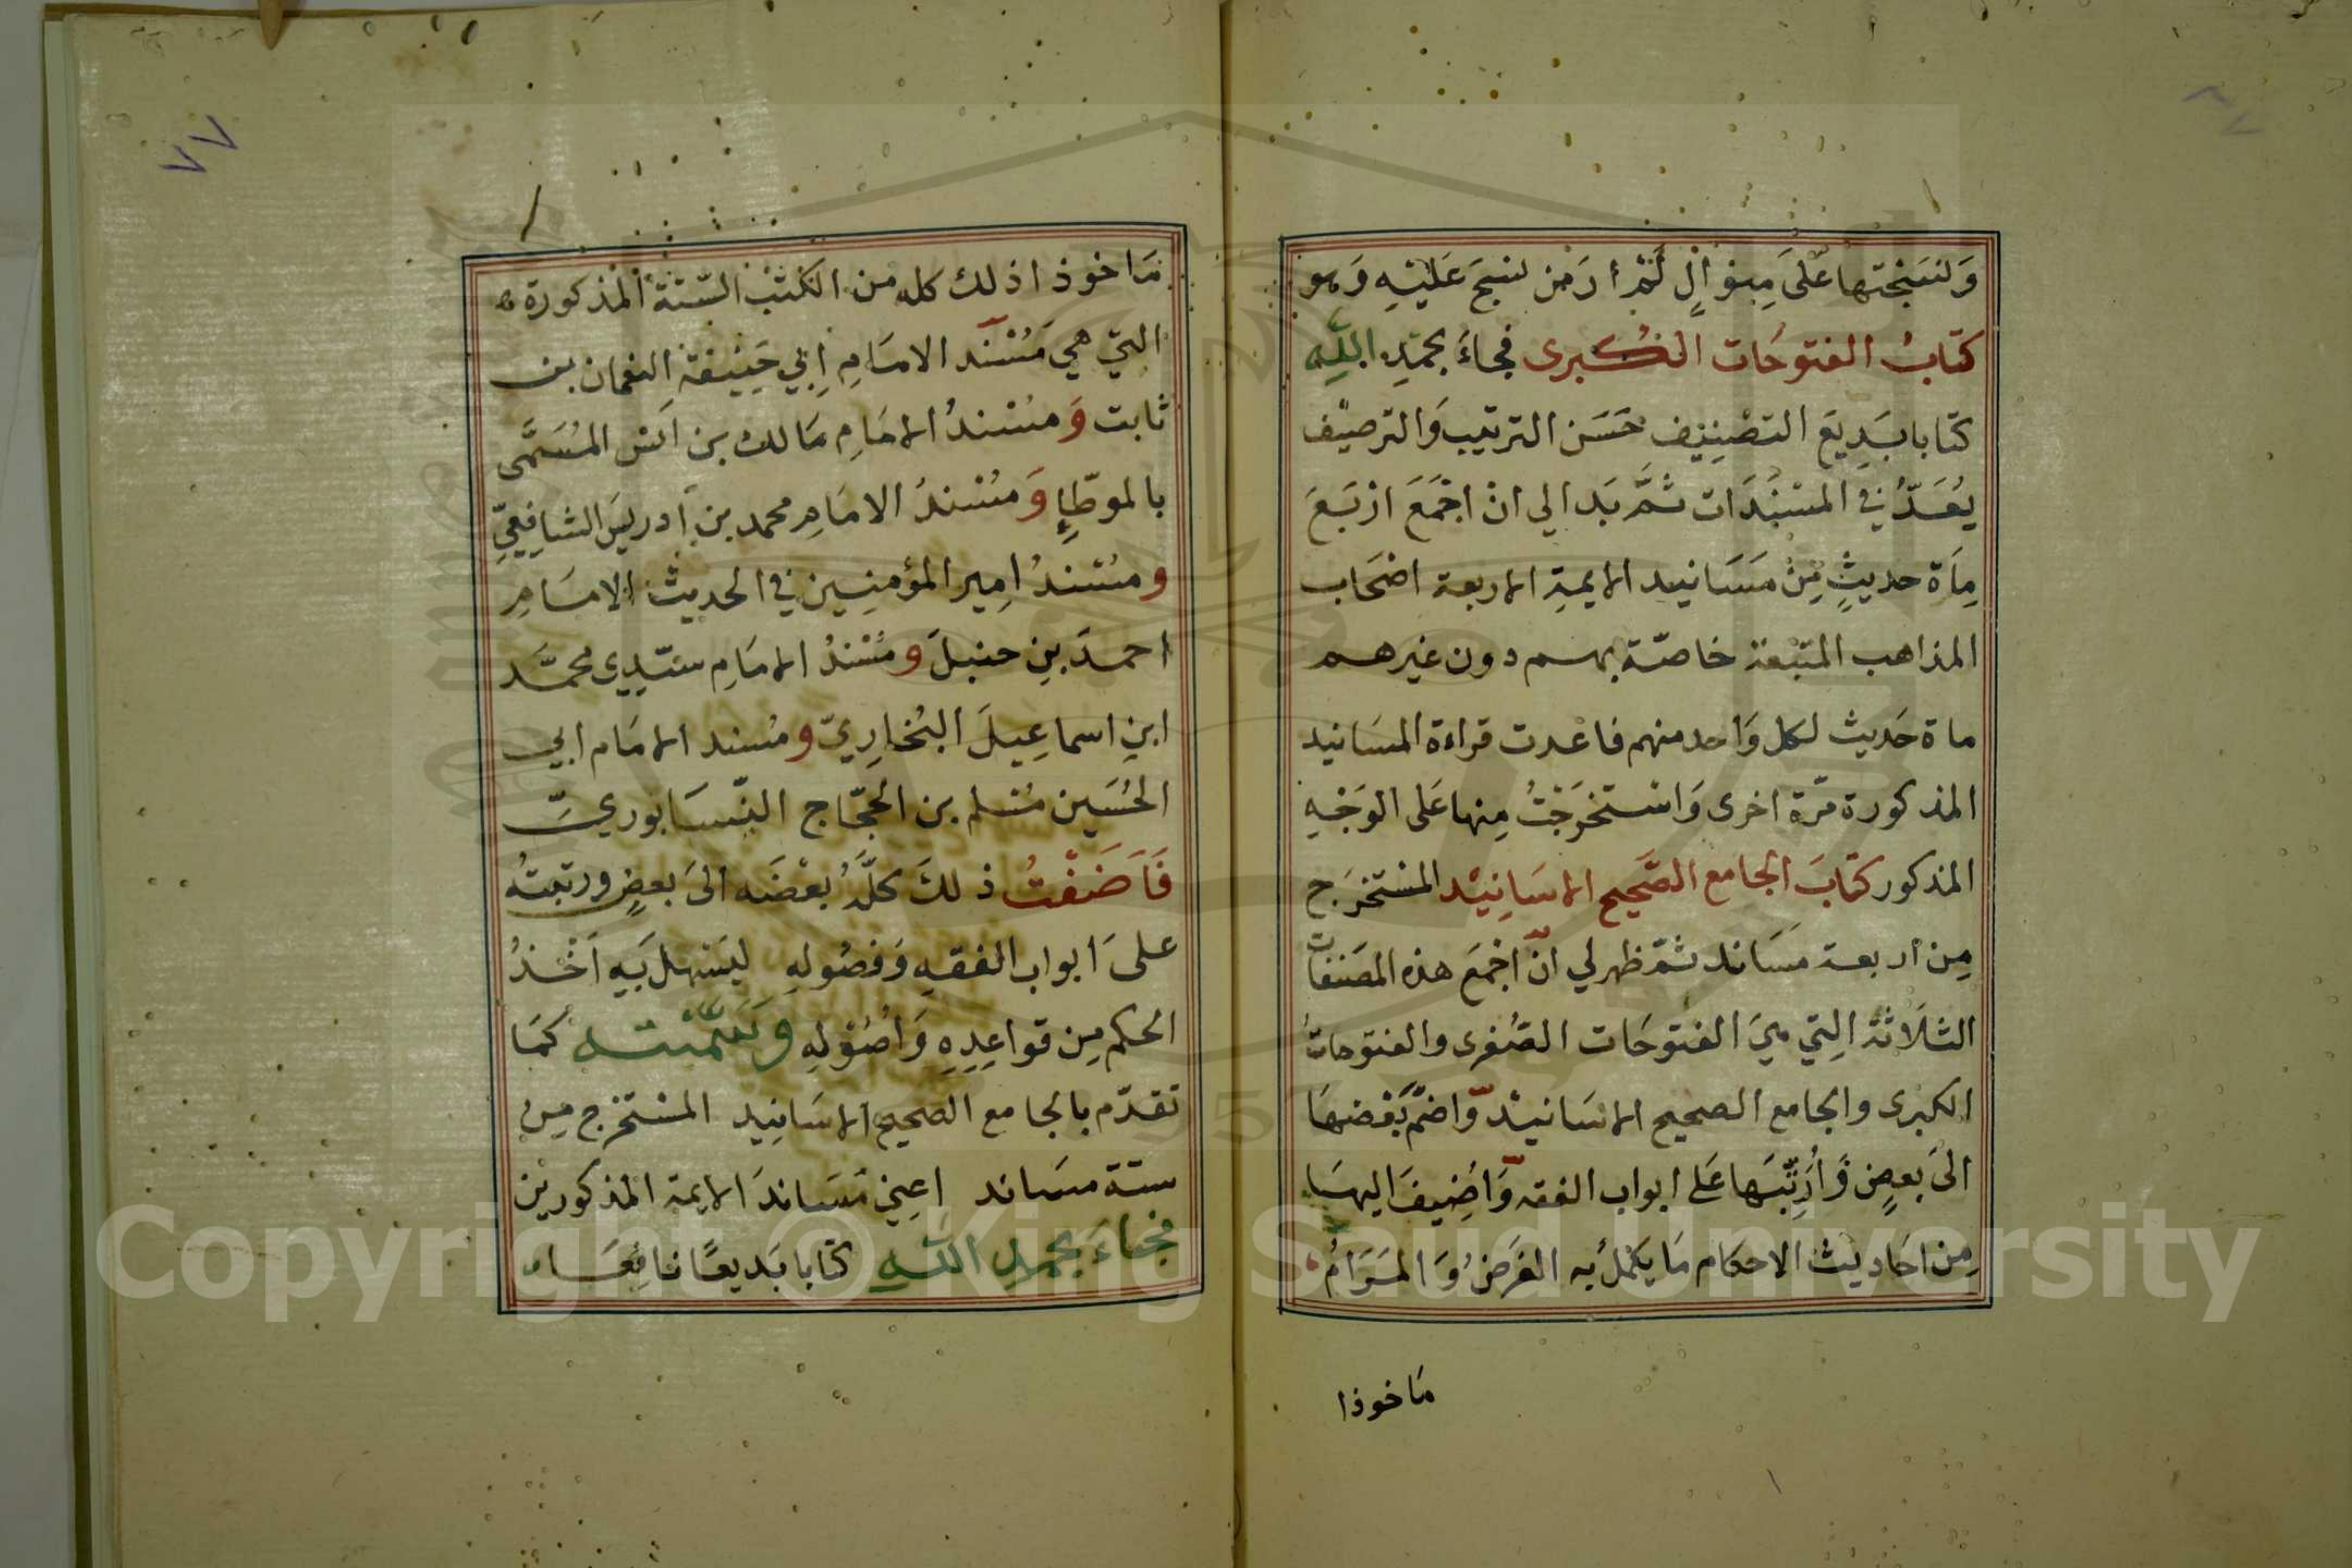 وَلنسَجْتها عَلىَ مِنوَالٍ لَمْ أرَ مَن نسجَ عَليْهِ وَهو
كتَابُ الفتوحَات الكُبرى فجاءَ بحمْدِ اللهِ
كتابا بَدِيعَ التصْنِيف حَسَن الترتيب وَالترصيْف
يُعَدُّ في المسْنَدَات ثمَّ بَدا لي انْ اجْمَعَ ارْبَعَ
مِاَة حديثٍ مِنْ مَسَانيد الايمةِ الاربعة اصْحَاب
المذاهب المتبَعة خاصّة بهم دون غيرهم
ماة حَديث لكل وَاحد منهم فاعْدت قراءة المسَانيد
المذكورة مَرّة اخرى وَاسْتخرَجْتُ مِنها عَلى الوَجْهِ
المذكور كتابَ الجامع الصَّحيح الاسَانِيْد المسْتخرَج
مِن أربعة مَسَاند ثمّ ظهر لي انّ اجْمَعَ هذه المصَنفات
الثلاَثة التِي هيَ الفتوحَات الصّغرى والفتوحاتُ
الكبرى والجامع الصحيح الاسَانيْد وَاضمّ بَعْضهَا
الىَ بعضٍ وَأُرَتّبَها عَلى ابواب الفقه وَاضِيفَ اليهَا
مِن احَاديث الاحكام مَا يكْمُلُ به الغَرَضُ وَالمَرَامُ
مَاخوذا
٧٧
مَاخوذا ذلك كله من الكتب السّتة المذكورة
التي هي مَسْنَد الامَامِ اِبي حَنِيفة النعْمان بن
ثابت وَمسْندُ الامَامِ مَالك بن انس المُسَمَّى
بالموطّإِ وَمسْندُ الامَامِ محمد بن ادريسَ الشافِعِيّ
ومسْندُ امِير المؤمنِين في الحديث الامَامِ
احمدَ بنِ حنبلَ ومُسْندُ الامَامِ سيّدِي محمَّد
ابنِ اسماعِيلَ البُخارِيّ ومُسند الامَام ابي
الحُسَين مُسْلم بن الحجّاج النّيسَابوريّ
فَاَضَفْتُ ذلكَ كلَّهُ بعْضَه الىَ بعضٍ ورتبتُه
علىَ ابواب الفقهِ وَفصُولهِ ليَسْهلَ بَهِ اَخْذُ
الحكم مِن قواعِدِهِ وَاصُوْلهِ وَسَمّيْته كمَا
تقدّم بالجامع الصحيح الاسَانِيد المسْتخرج مِن
ستة مسَاند اعني مَسَاندَ الايمة المذكورين
فجَاءَ بحمدِ اللهِ كتابا بَديعًا نافِعَا
Copyright © King Saud University